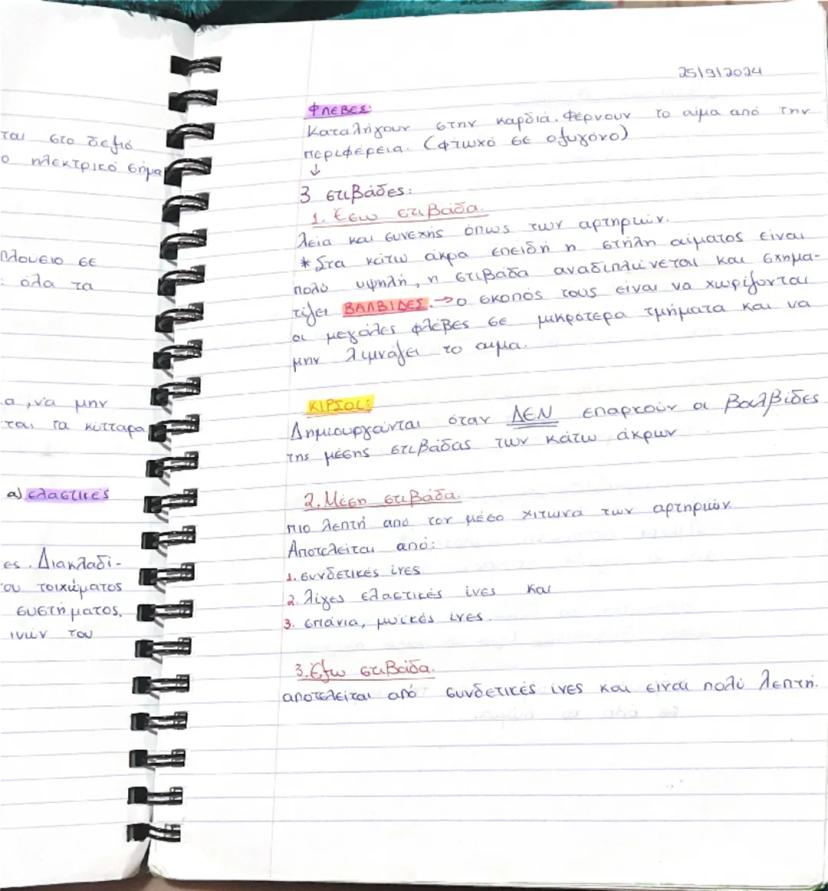 ται στο δεξιό
ο ηλεκτρικό σήμα
πλούσιο σε
: όλα τα
α, να μην
ται τα κύτταρα
α) ελαστικές
ες. Διακλαδί-
ου τοιχώματος
συστήματος.
ινών του
25/9/2024
ΦΛΕΒΕΣ:
Καταλήγουν στην καρδιά. Φέρνουν το αίμα από την
περιφέρεια. (φτωχό σε οξυγόνο)
↓
3 στιβάδες:
1. Έσω στιβάδα.
λεία και συνεχής όπως των αρτηριών.
* Στα κάτω άκρα επειδή η στήλη αίματος είναι
πολύ υψηλή, η στιβάδα αναδιπλώνεται και σχημα-
τίζει ΒΑΛΒΙΔΕΣ. → ο σκοπός τους είναι να χωρίζονται
οι μεγάλες φλέβες σε μικρότερα τμήματα και να
μην λιμνάζει το αιμα.
ΚΙΡΣΟΙ:
Δημιουργούνται όταν ΔΕΝ επαρκούν οι βαλβίδες
της μέσης στιβάδας των κάτω άκρων
2. Μέση στιβάδα.
πιο λεπτή από τον μέσο χιτώνα των αρτηριών.
Αποτελείται από:
1. συνδετικές ίνες
2. λίγες ελαστικές ίνες και
3. σπάνια, μυϊκές ίνες.
3. Έξω στιβάδα.
αποτελείται από συνδετικές ίνες και είναι πολύ λεπτή.